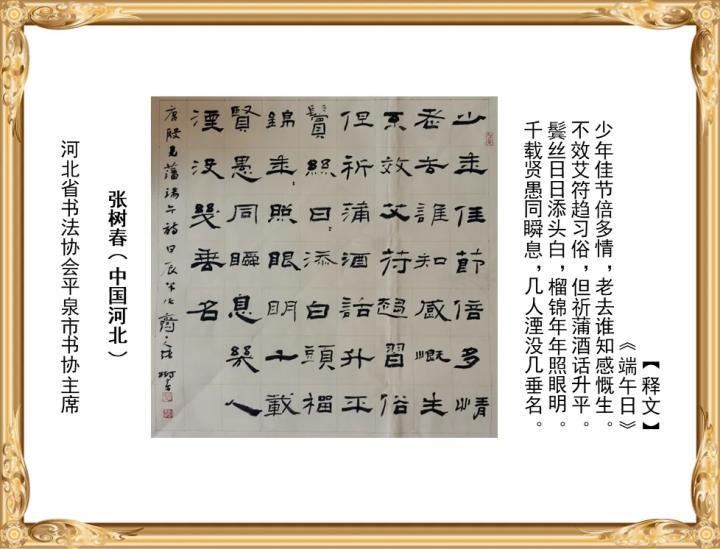 【释文】
《端午日》
少年佳节倍多情，老去谁知感慨生。
不效艾符趋习俗，但祈蒲酒话升平。
鬓丝日日添头白，榴锦年年照眼明。
千载贤愚同瞬息，几人湮没几垂名。
少年佳節倍多情
老去誰知感慨生
不效艾符趨習俗
但祈蒲酒話升平
鬢絲日:添白頭榴
錦年:照眼明千載
賢愚同瞬息幾人
湮没幾垂名
唐殷尧藩端午詩甲辰
张树春（中国河北）
河北省书法协会平泉市书协主席